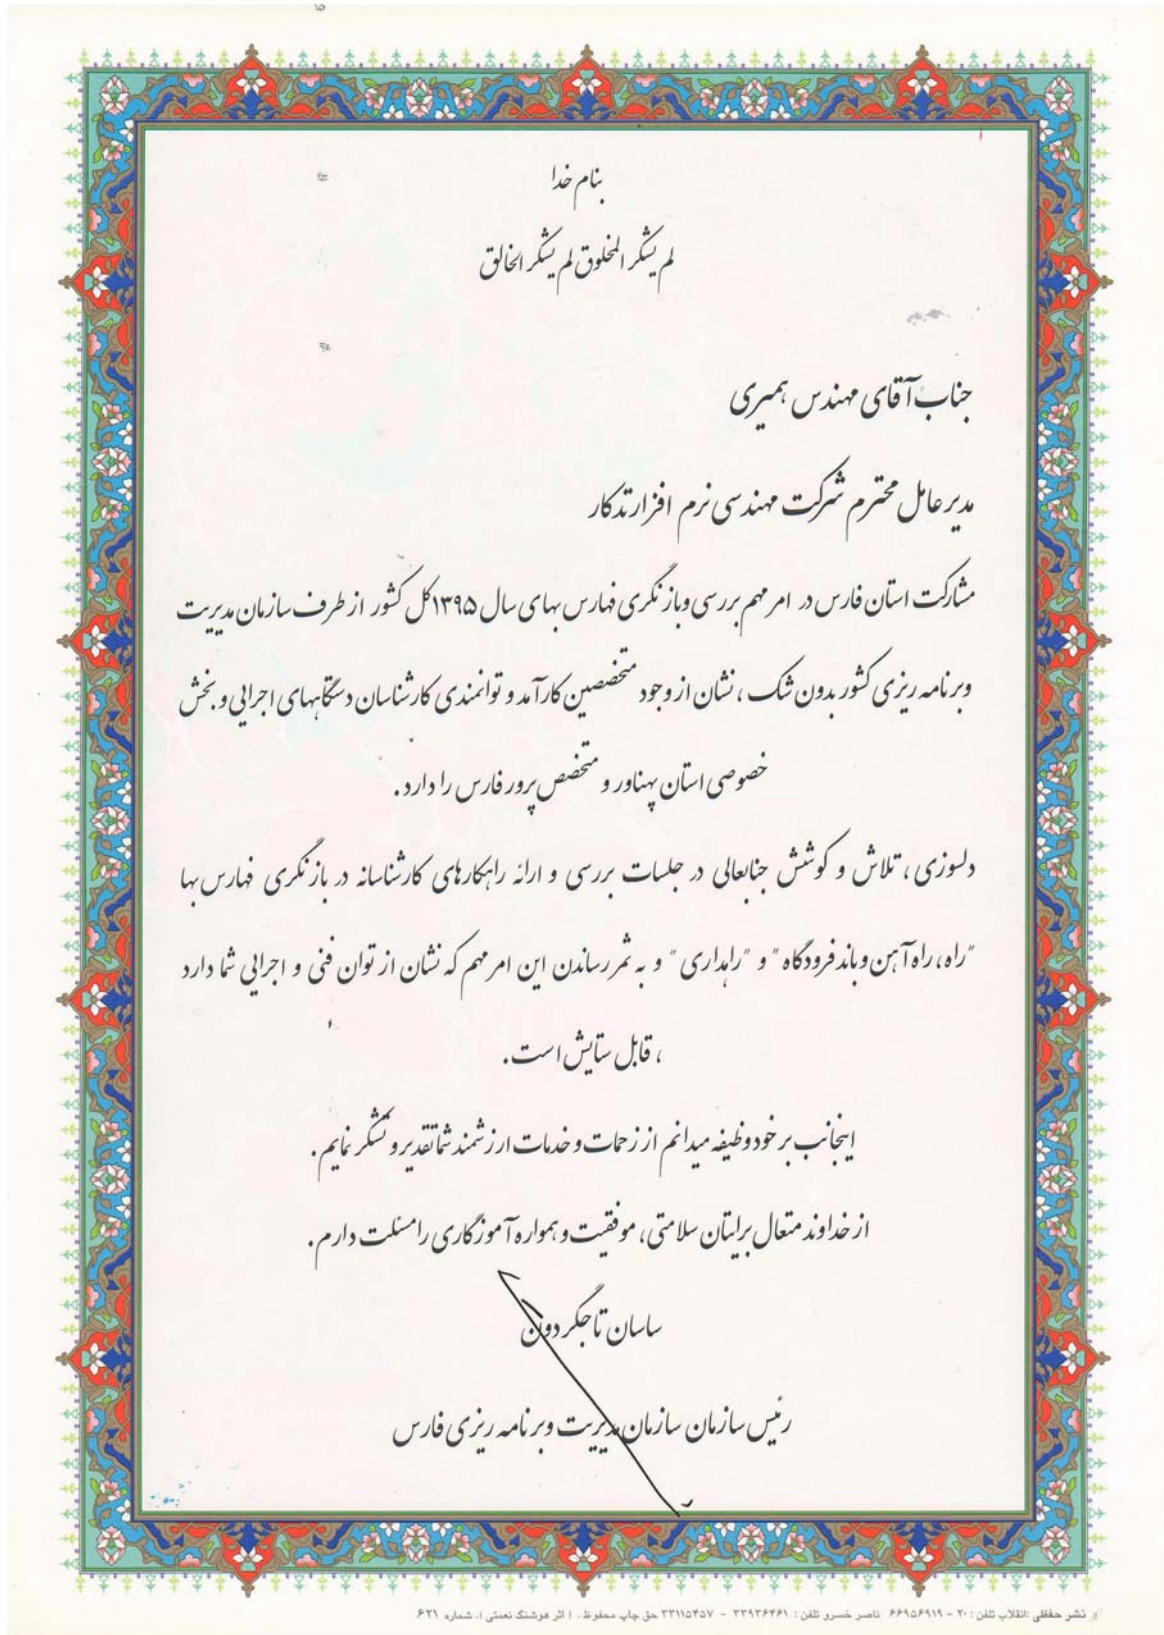 بنام خدا
لم یشکر المخلوق لم یشکر الخالق
جناب آقای مهندس همیری
مدیر عامل محترم شرکت مهندسی نرم افزار تدکار
مشارکت استان فارس در امر مهم بررسی وبازنگری فهارس بهای سال ۱۳۹۵ کل کشور از طرف سازمان مدیریت
وبرنامه ریزی کشور بدون شک ، نشان از وجود متخصصین کارآمد و توانمندی کارشناسان دستگاههای اجرایی و بخش
خصوصی استان پهناور و متخصص پرور فارس را دارد .
دلسوزی ، تلاش و کوشش جنابعالی در جلسات بررسی و ارائه راهکارهای کارشناسانه در بازنگری فهارس بها
"راه ، راه آهن وباند فرودگاه " و "راهداری " و به ثمر رساندن این امر مهم که نشان از توان فنی و اجرایی شما دارد
، قابل ستایش است .
اینجانب بر خود وظیفه میدانم از زحمات و خدمات ارزشمند شما تقدیر و تشکر نمایم .
از خداوند متعال برایتان سلامتی ، موفقیت و همواره آموزگاری را مسئلت دارم .
ساسان تاجگردون
رئیس سازمان سازمان مدیریت وبرنامه ریزی فارس
نشر حفظی :انقلاب تلفن : ۲۰ - ۶۶۹۵۶۹۱۹ ناصر خسرو تلفن : ۳۳۹۳۶۴۶۱ - ۳۳۱۱۵۴۵۷ حق چاپ محفوظ . ( اثر هوشنگ نعمتی ). شماره ۶۲۱